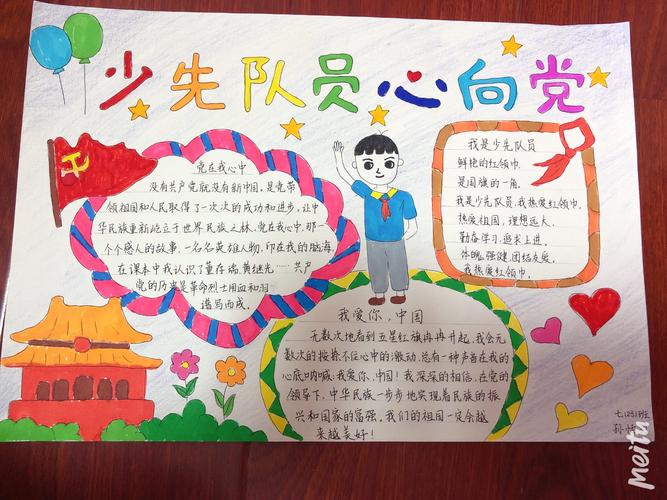 少先队员心向党
党在我心中
没有共产党就没有新中国，是党带
领祖国和人民取得了一次次的成功和进步，让中
华民族重新屹立于世界民族之林。党在我心中，那一
个个感人的故事，一名名英雄人物，印在我的脑海，
在课本中我认识了董存瑞，黄继光……共产
党的历史是革命烈士用血和泪
谱写而成。
我是少先队员
鲜艳的红领巾，
是国旗的一角。
我是少先队员，我热爱红领巾。
热爱祖国，理想远大，
勤奋学习，追求上进。
体魄强健，团结友爱。
我热爱红领巾。
我爱你，中国
无数次地看到五星红旗冉冉升起，我会无
数次的按捺不住心中的激动，总有一种声音在我的
心底呐喊：我爱你，中国！我深深的相信，在党的
领导下，中华民族一步步地实现着民族的振
兴和国家的富强。我们的祖国一定会越
来越美好！
七(23)班
孙
Meitu